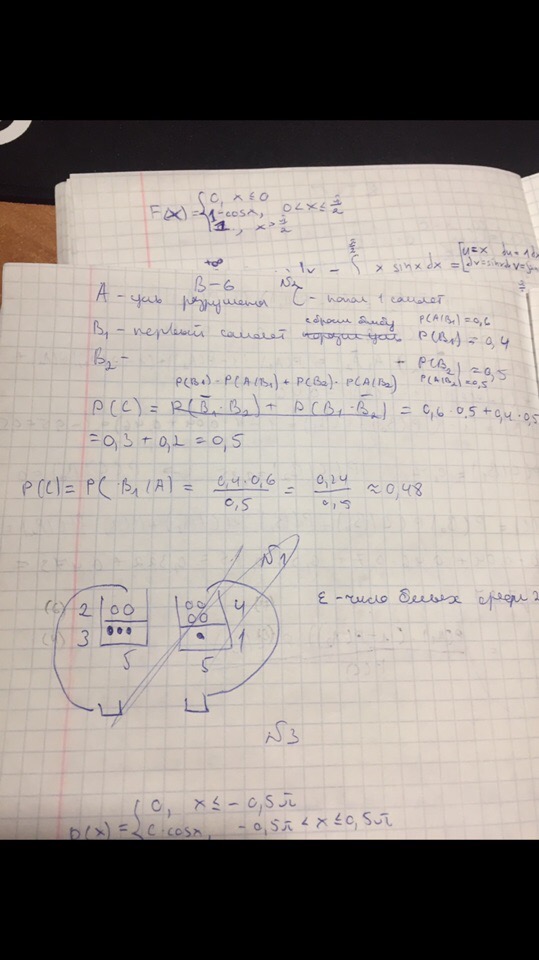 F(x) = { 0, x ≤ 0
1-cosx, 0 < x ≤ π/2
1, x > π/2
- ∫ x sinx dx = [u=x
+∞
В-6
№2
А - цель разрушена С - попал 1 самолет
B₁ - первый самолет сбросил бомбу P(A|B₁) = 0,6
P(B₁) = 0,4
B₂ - P(B₂) = 0,5
P(A|B₂) = 0,5
P(B₁) · P(A|B₁) + P(B₂) · P(A|B₂)
P(C) = P(B̄₁ · B₂) + P(B₁ · B̄₂) = 0,6 · 0,5 + 0,4 · 0,5
= 0,3 + 0,2 = 0,5
P(C) = P(B₁/A) = 0,4·0,6/0,5 = 0,24/0,5 ≈ 0,48
№1
2 4 ξ - число белых среди 2
3 1
5 5
№3
p(x) = { 0, x ≤ - 0,5π
C · cosx, - 0,5π < x ≤ 0,5π